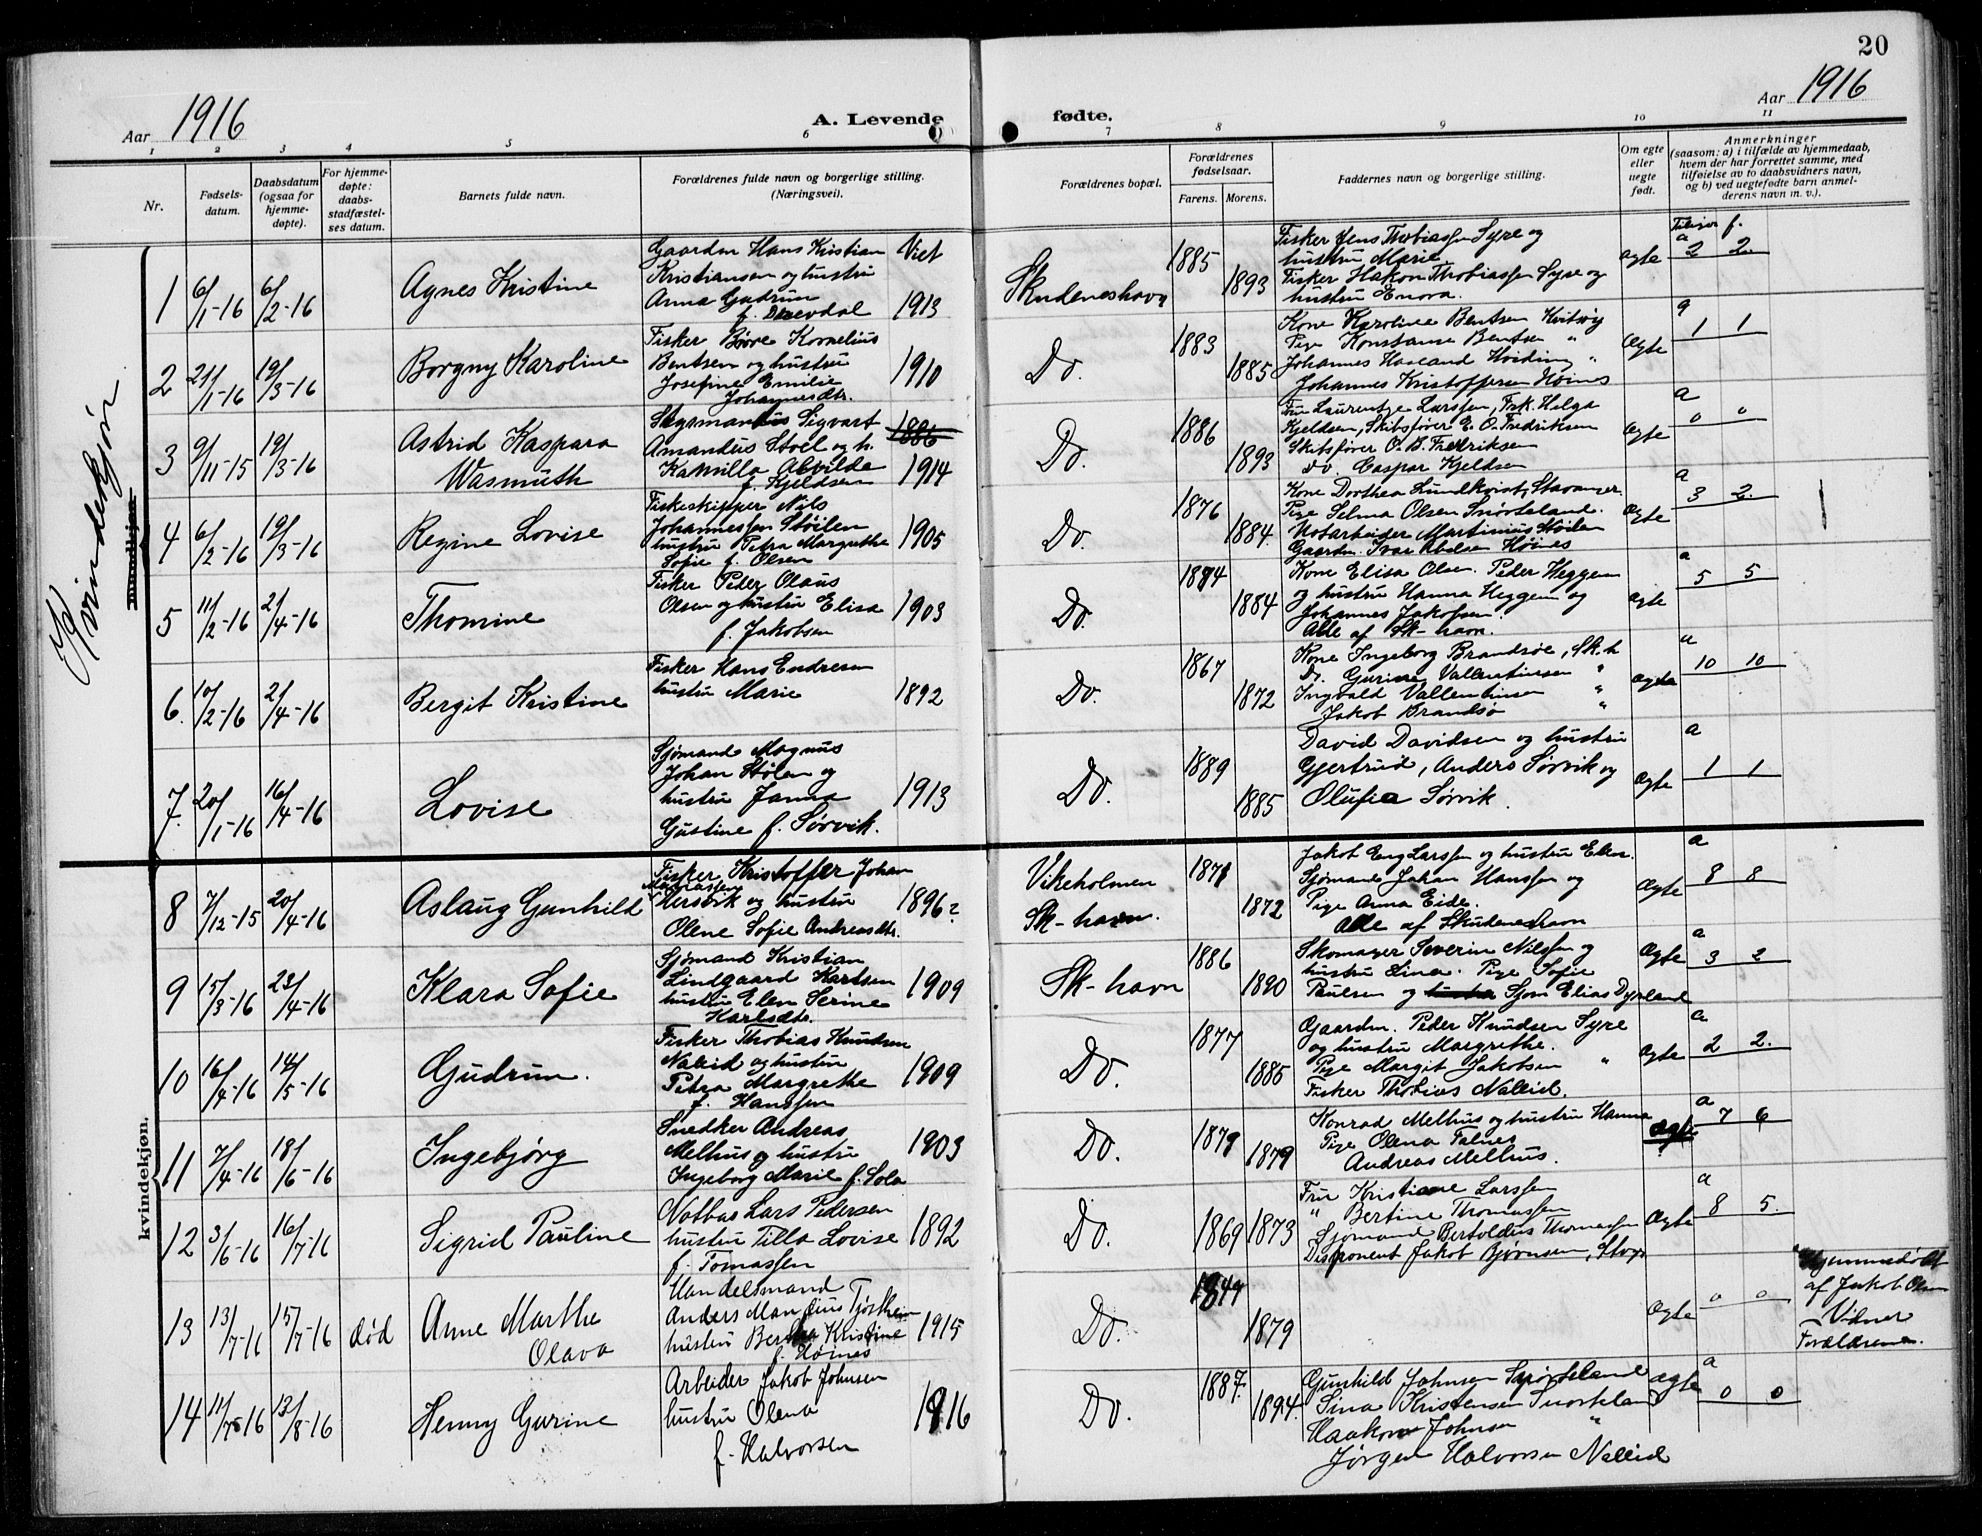 20
Aar 1916
A. Levende
fødte.
Aar 1916
1 2 3 4 5 6 7 8 9 10 11
Nr.
Fødsels-
datum.
Daabsdatum
(ogsaa for
hjemme-
døpte).
For hjemme-
døpte:
daabs-
stadfæstel-
ses datum.
Barnets fulde navn.
Forældrenes fulde navn og borgerlige stilling.
(Næringsvei).
Forældrenes bopæl.
Forældrenes
fødselsaar.
Farens. Morens.
Faddernes navn og borgerlige stilling.
Om egte
eller
uegte
født.
Anmerkninger
(saasom: a) i tilfælde av hjemmedaab,
hvem der har forrettet samme, med
tilføielse av to daabsvidners navn,
og b) ved uegtefødte barn anmel-
derens navn m. v.).
Kvindekjøn
kvindekjøn.
1 6/1-16 6/2-16 Agnes Kristine
Gaardm Hans Kristian Viet
Kristiansen og hustru
Anna Gudrun 1913
Skudeneshavn 1885 1893
Fisker Jens Thobiassen Syre og
hustru Marie
Fisker Hakon Thobiassen Syre og
hustru Enora.
ægte
a 2 2.
2 21/1-16 19/3-16 Borgny Karoline
Fisker Børe Kornelius
Bentsen og hustru 1910
Josefine Emilie
Johannesdtr.
Do. 1883 1885
Kone Karoline Bentsen Kvitsøy
Pige Konstanse Bentsen "
Johannes Haaland Hviding "
Johannes Kristoffersen Høines
Ægte
a 1 1
3 9/11-15 19/3-16 Astrid Kaspara
Wasmuth
Sigvart 1886
Amandus Stoel og h.
Kamilla Alvilde 1914
f. Kjeldsen
Do. 1886 1893
Fru Laurentze Larssen, Frk. Helga
Kjeldsen, Skibsfører E. O. Fredriksen
Skibsfører O. B. Fredriksen
do Caspar Kjeldsen
Ægte
a 0 0
4 6/2-16 19/3-16 Regine Lovise
Fiskeskipper Nils
Johannessen Støilen
hustru Petra Margrethe 1905
Sofie f. Olsen
Do. 1876 1884.
Kone Dorthea Lundkvist, Stavanger
Pige Selma Olsen Snørteland.
Notarbeider Martinius Støilen
Gaardm. Ivar Abelsen Høines
Ægte
a 3 2.
5 11/2-16 21/4-16 Thomine
Fisker Peder Olaus
Olsen og hustru Elisa 1903
f. Jakobsen
Do. 1884 1884
Kone Elisa Olsen. Peder Heggem
og hustru Hanna Heggem og
Johannes Jakobsen.
Alle af Sk-havn.
ægte
a 5 5
6. 10/2-16 21/4-16 Bergit Kristine
Fisker Hans Endresen
hustru Marie 1892
Do. 1867 1872
Kone Ingeborg Brandsøe, Sk.h
Do. Gurine Vallentinsen "
Ingvald Vallentinsen "
Jakob Brandsø "
ægte
a 10 10
7. 20/1-16 16/4-16 Lovise
Sjømand Magnus
Johan Stølen og
hustru Janna 1913
Gustine f. Sørvik.
Do. 1889 1885
David Davidsen og hustru
Gjertrud, Anders Sørvik og
Olufia Sørvik.
Ægte
a 1 1
8 7/12-15 20/4-16 Aslaug Gunhild
Fisker Kristoffer Johan
Hersvik og hustru 1896?
Olene Sofie Andreasdtr.
Vikeholmen
Sk-havn. 1871 1872
Jakob Eng Larssen og hustru Elen.
Sjømand Johan Hanssen og
Pige Anna Eide.
Alle af Skudeneshavn
Ægte
a 8 8
9 15/3-16 23/4-16 Klara Sofie
Sjømand Kristian
Lindgaard Karlsen
hustru Elen Serine 1909
Karlsdtr.
Sk-havn 1886 1890
Skomager Severin Nilssen og
hustru Lina. Pige Sofie
Paulsen og hustru Sjom Elias Dyrland
Ægte
a 3 2
10 16/4-16 14/5-16 Gudrun.
Fisker Thobias Knudsen
Naleid og hustru
Petra Margrethe 1909
f. Hanssen
Do. 1877 1885
Gaardm. Peder Knudsen Syre
og hustru Margrethe.
Pige Margit Jakobsen "
Fisker Thobias Nalleid.
Ægte
a 2 2.
11 7/4-16 18/6-16 Ingebjørg
Snedker Andreas
Melhus og hustru 1903
Ingeborg Marie f. Sola
Do. 1879
Konrad Melhus og hustru Hanna
Pige Olena Falnes
Andreas Melhus.
ægte
a 7 6
12 3/6-16 16/7-16 Sigrid Pauline
Notbas Lars Pedersen
hustru Tilla Lovise 1892
f. Tomassen
Do. 1869 1873
Fru Kristiane Larssen
" Bertine Thomassen
Sjømand Bertoldus Thomassen
Disponent Jakob Bjørnsen, Stvgr
Ægte
a 8 5.
13 13/7-16 15/7-16 død Anne Marthe
Olava
Handelsmand
Anders Mandius Tjøstheim
hustru Bertha Kristine 1915
f. Høines
Do. 1879
Ægte
0 0
Hjemmedøbt
af Jakob Olsen
Vidner
Forældrene.
14 13/8-16 Henny Gurine
Arbeider Jakob Johnsen
hustru Olena 1916
f. Halvorsen
Do. 1887. 1894.
Gunhild Johnsen Snørteland
Sina Kristensen Snørteland
Haakon Johnsen "
Jørgen Halvorsen Nalleid
Ægte
a 0 0